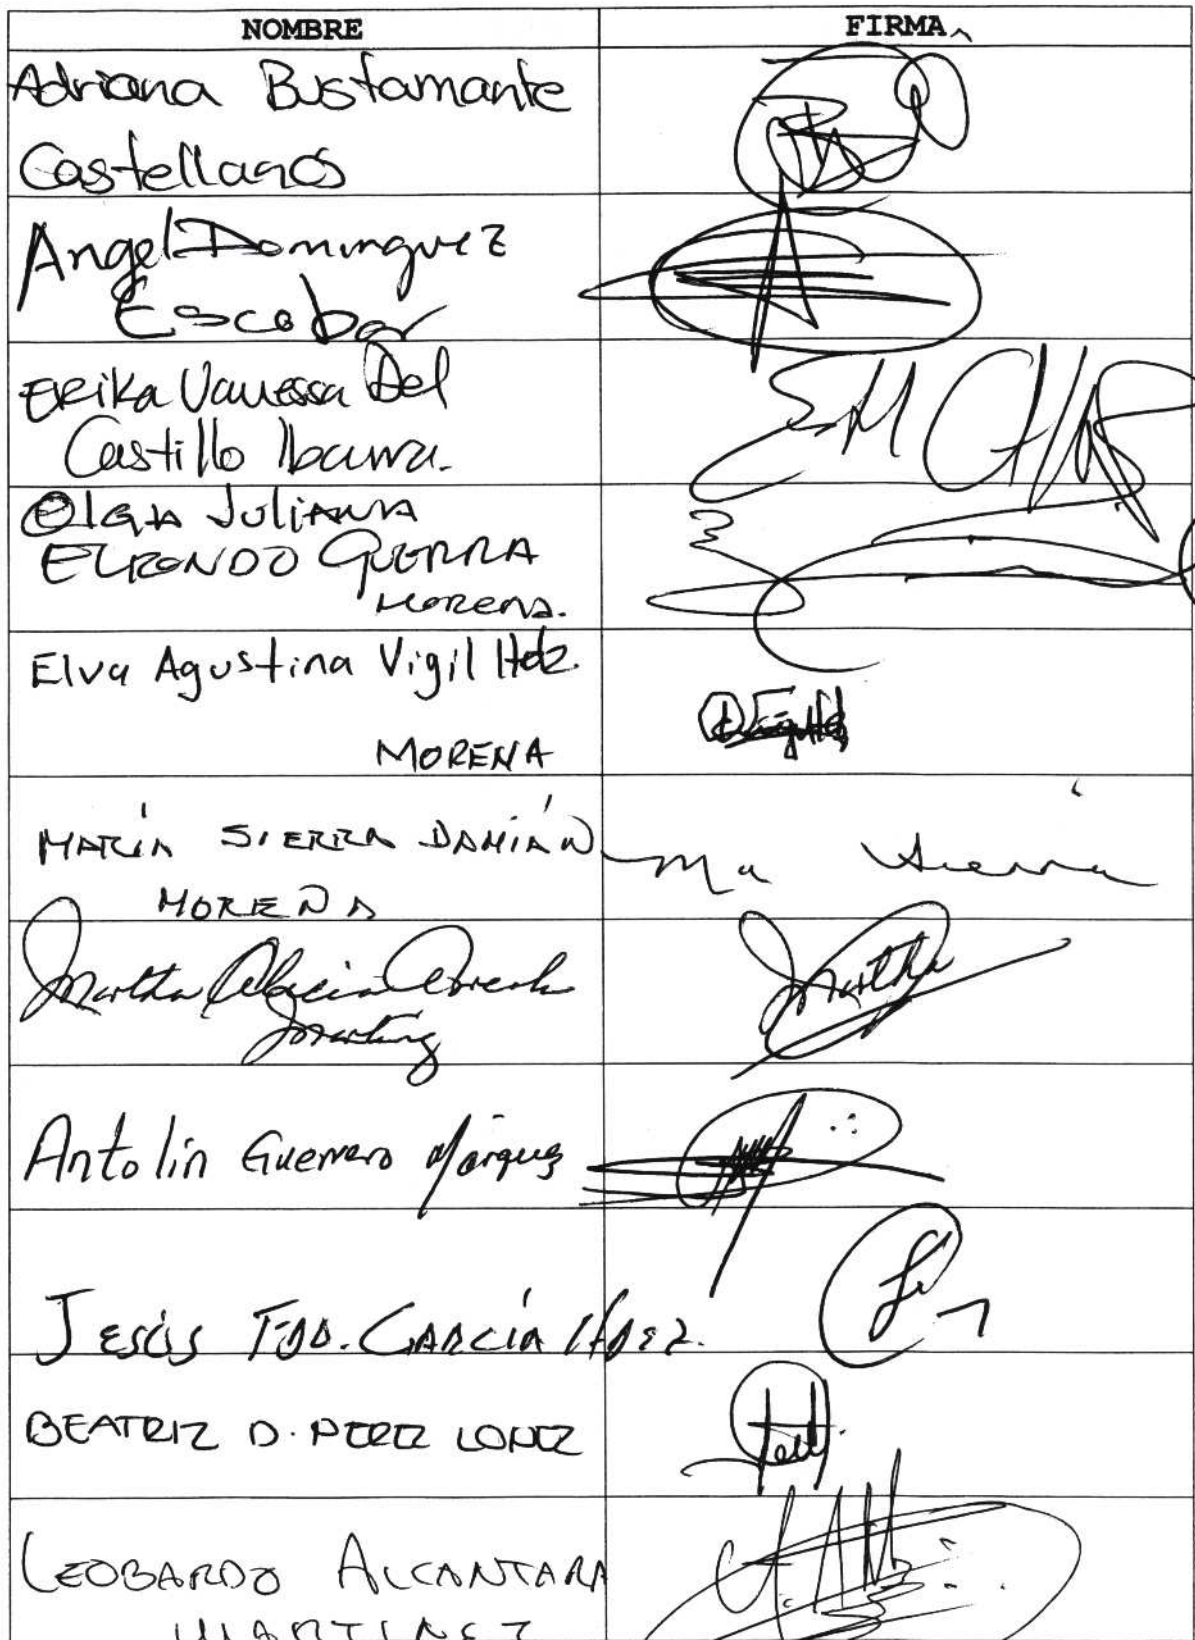 NOMBRE FIRMA
Adriana Bustamante
Castellanos
Angel Dominguez
Escobar
Erika Vanessa Del
Castillo Ibarra.
Olga Juliana
ELIZONDO GUERRA
Morena.
Elva Agustina Vigil Hdz.
MORENA
MARÍA SIERRA DAMIÁN Ma Sierra
MORENA
Martha Alicia Arreola Martha
Martínez
Antolin Guerrero Márquez
JESÚS FDO. GARCÍA HDEZ.
BEATRIZ D. PEREZ LOPEZ
LEOBARDO ALCANTARA
MARTINEZ